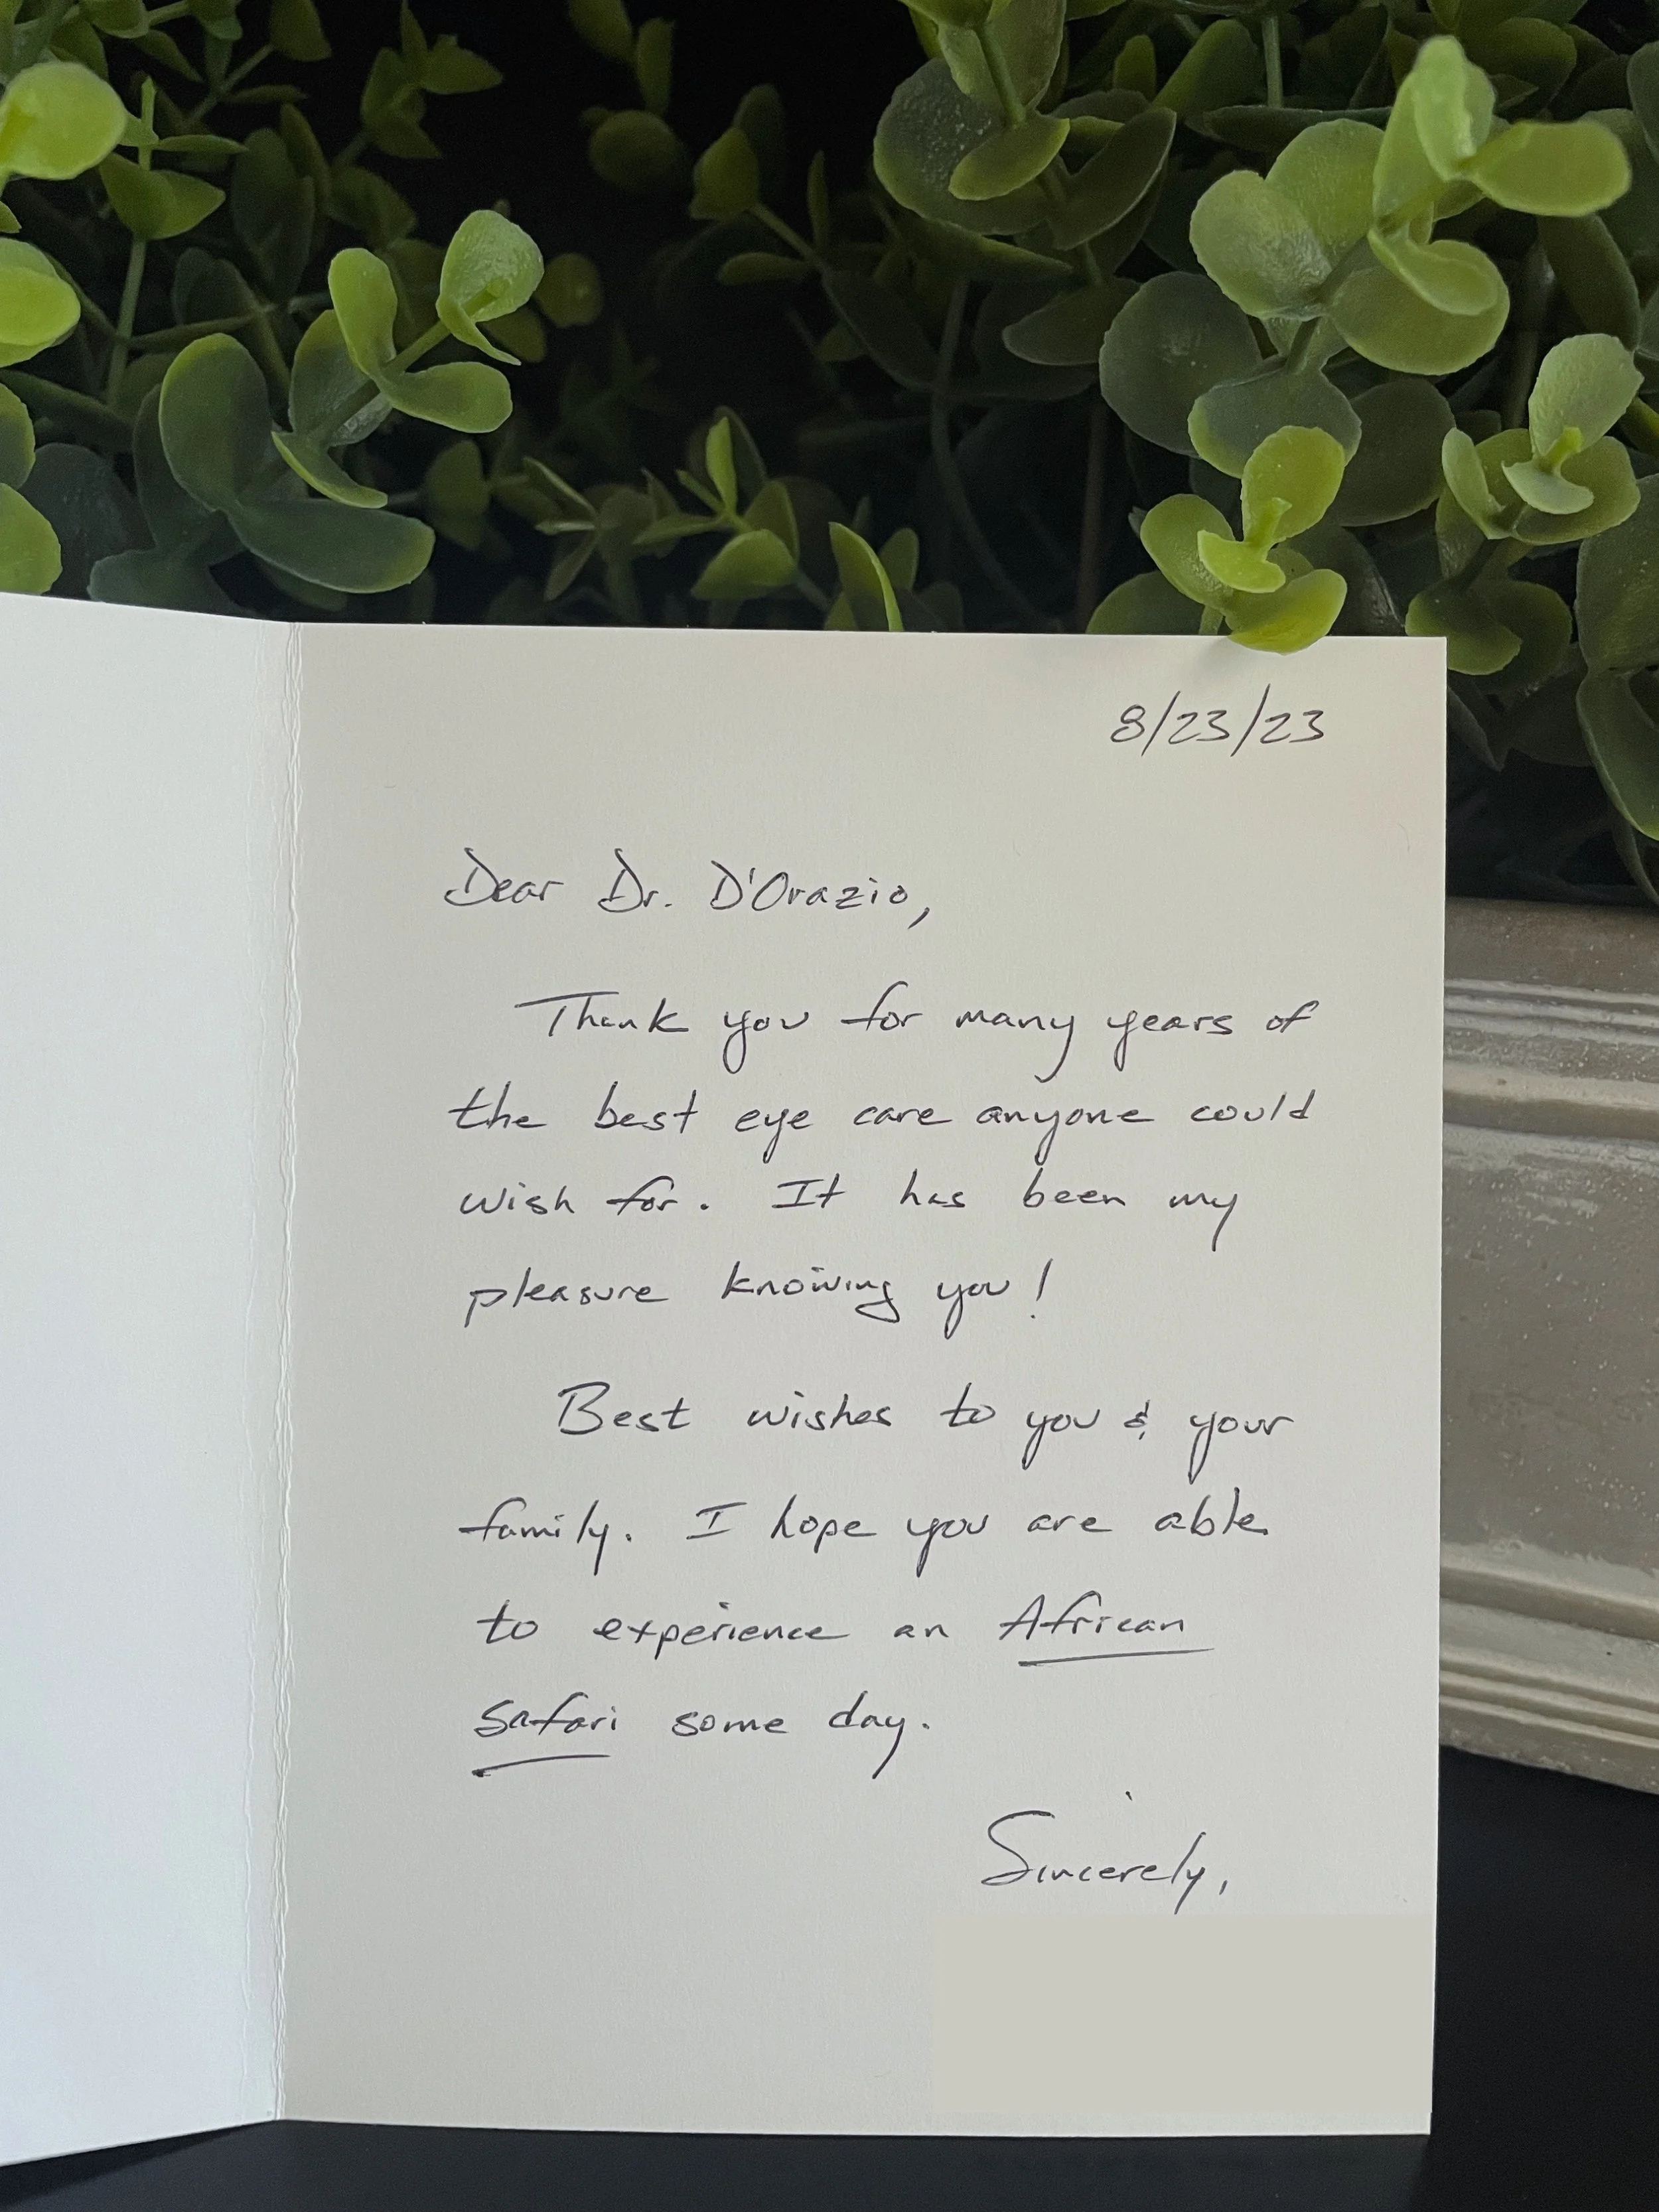 8/23/23
Dear Dr. D'Orazio,
Thank you for many years of
the best eye care anyone could
wish for. It has been my
pleasure knowing you!
Best wishes to you & your
family. I hope you are able
to experience an African
safari some day.
Sincerely,